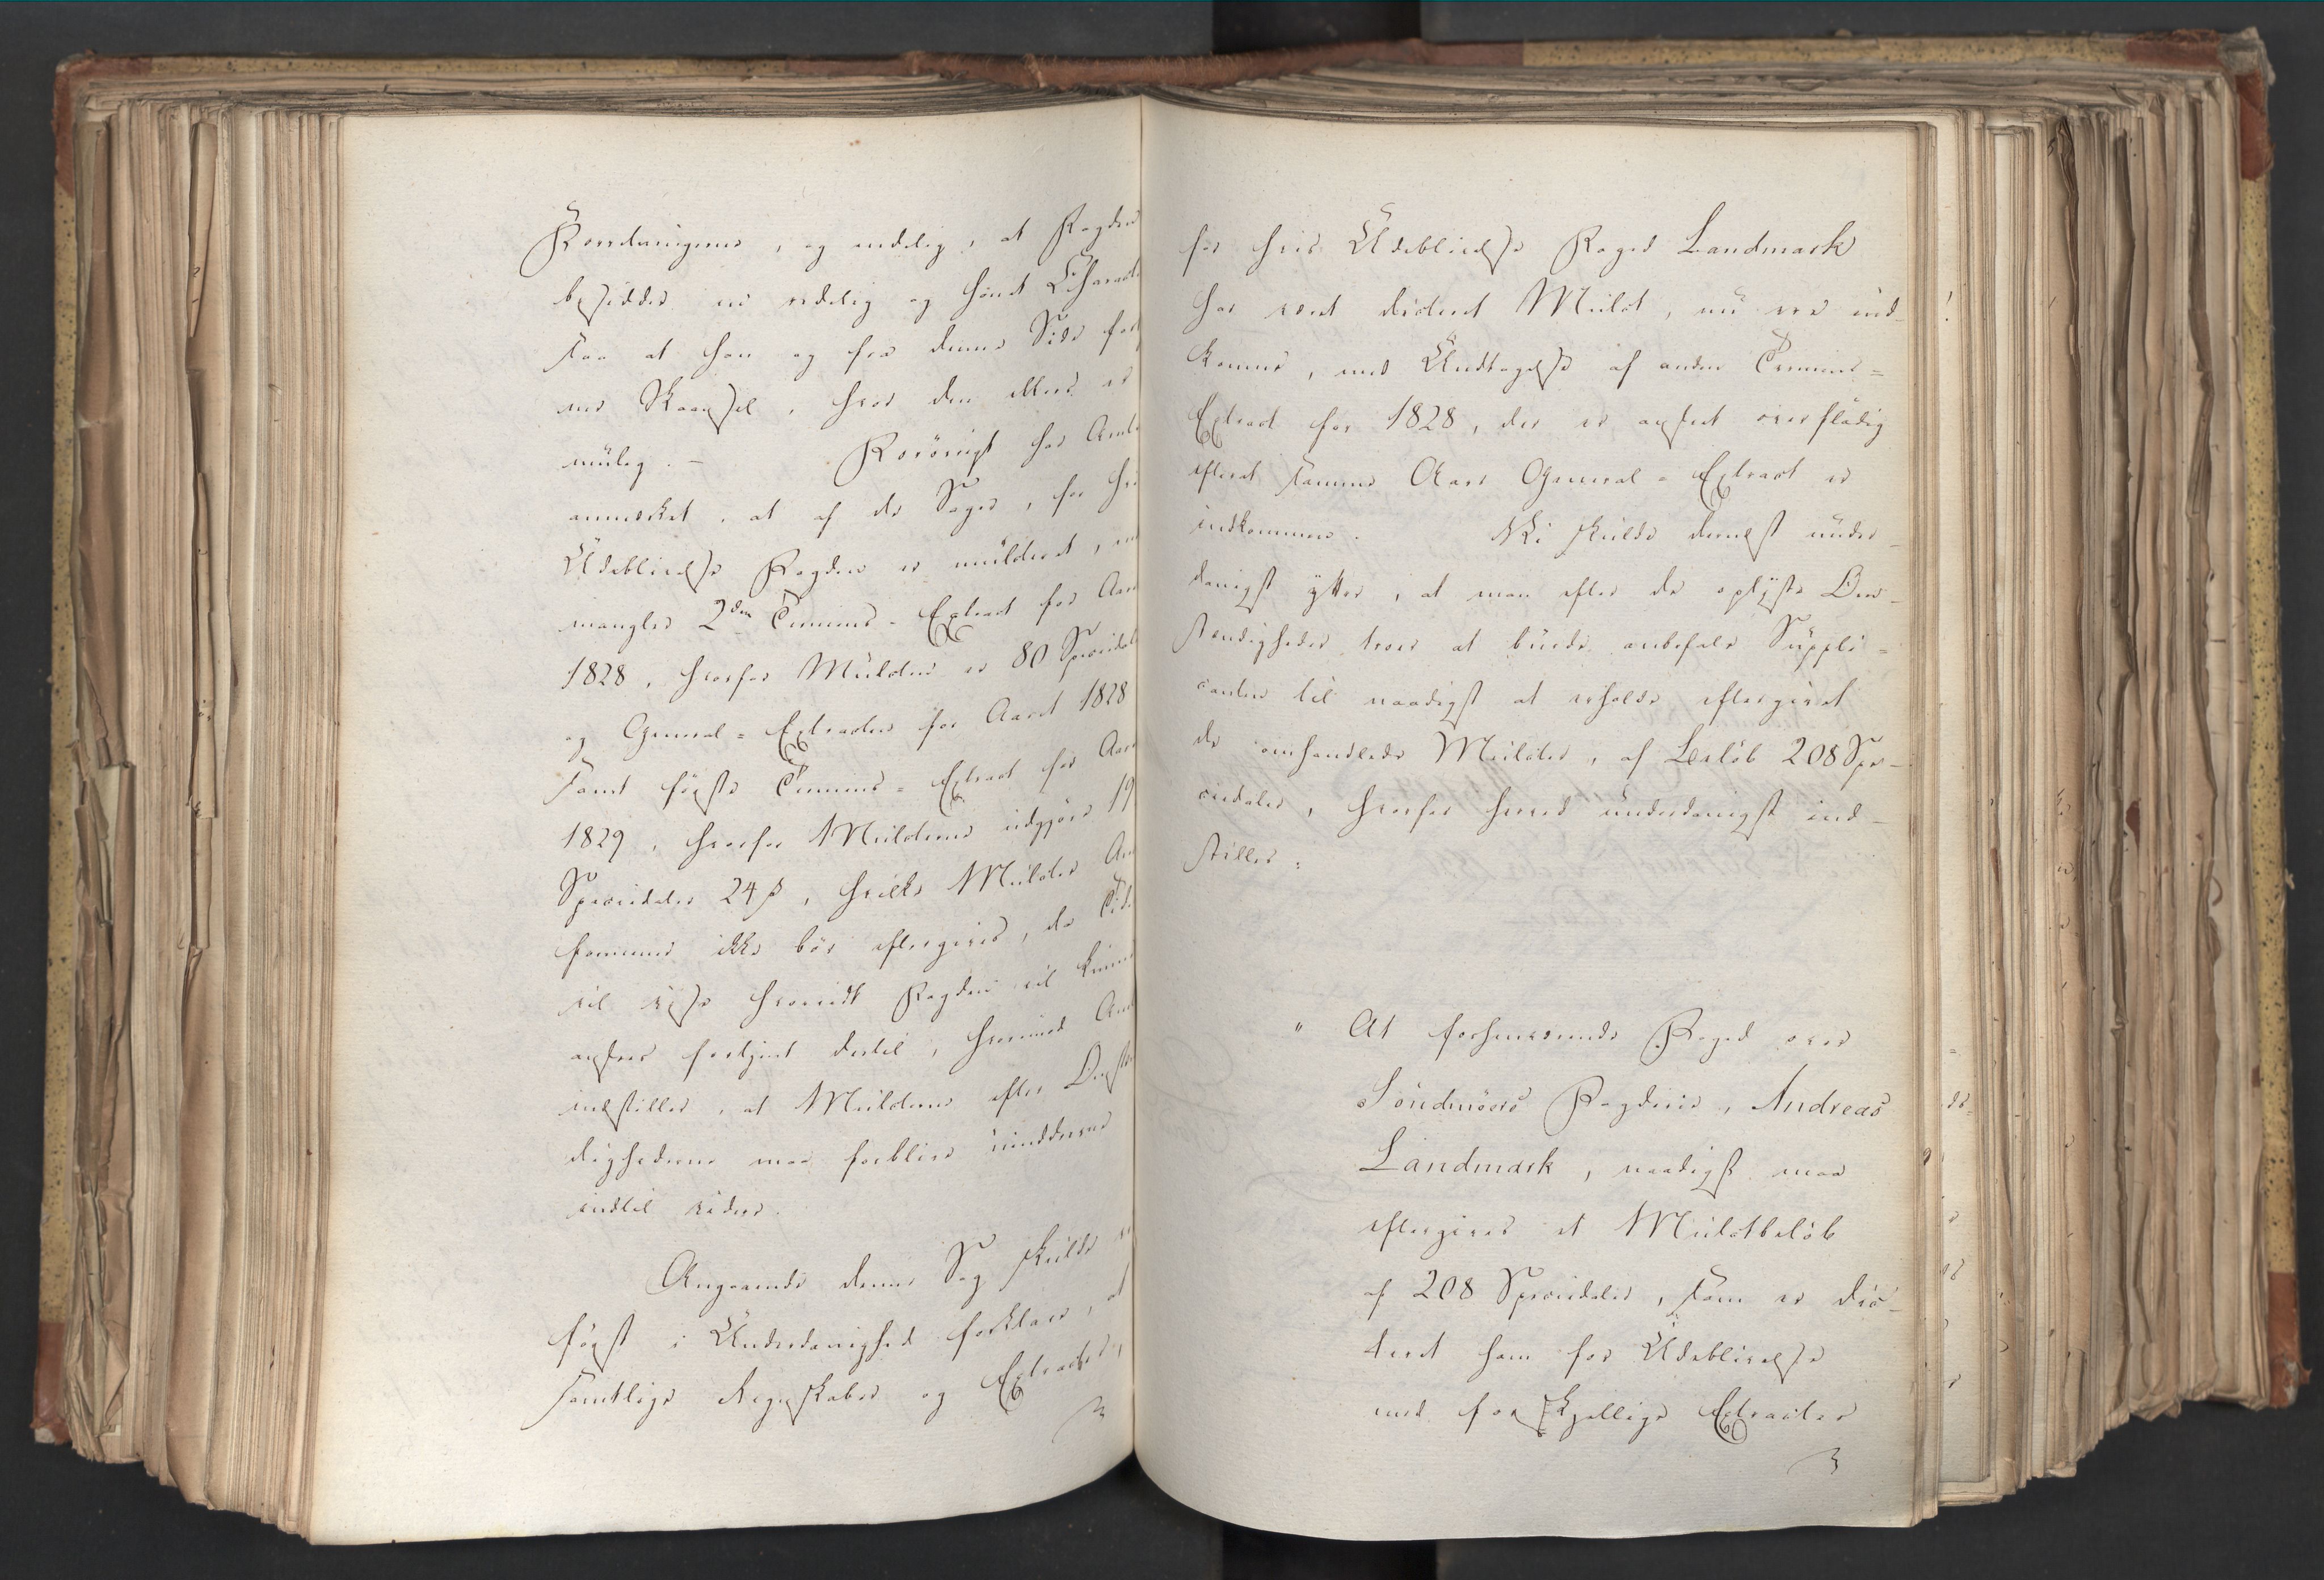 Forretningerne, og endelig, at Fogden
besidder en redelig og human Charact
saa at han og fra denne Side for
ner Skaansel, hvor den ellers er
mulig. — Forövrigt har Amt
anmærket, at af de Sager, for hv
Udeblivelse Fogden er mulcteret,
mangler 2den Termins-Extract for Aar
1828, hvorfor Mulcten er 80 Speciedal
og General-Extracten for Aaret 1828
samt förste Termins-Extract for Aar
1829, hvorfor Mulcterne udgjöre 19
Speciedaler 24 ß, hvilke Mulcter
formener ikke bör eftergives, da Tid
vil vise hvorvidt Fogden vil kunne
ansees fortjent dertil, hvorimod Amt
indstiller, at Mulcterne efter Omstæn
dighederne maa forblive uinddrevne
indtil videre.
Angaaende denne Sag skulde vi
först i Underdanighed forklare, at
samtlige Regnskaber og Extracter,
for hvis Udeblivelse Foged Landmark
har været dicteret Mulct, nu ere ind-
komne, med Undtagelse af anden Termins-
Extract for 1828, der er anseet overflödig
efterat samme Aars General-Extract er
indkommen. Vi skulde dernæst under-
danigst yttre, at man efter de oplyste Om-
stændigheder troer at burde anbefale Suppli-
canten til naadigst at erholde eftergivet
de omhandlede Mulcter, af Belöb 208 Spe-
ciedaler, hvorfor herved underdanigst ind-
stilles:
" At forhenværende Foged over
Söndmöers Fogderie, Andreas
Landmark, naadigst maa
eftergives et Mulctbelöb
af 208 Speciedaler, som er dic-
teret ham for Udeblivelse
med forskjellige Extracter